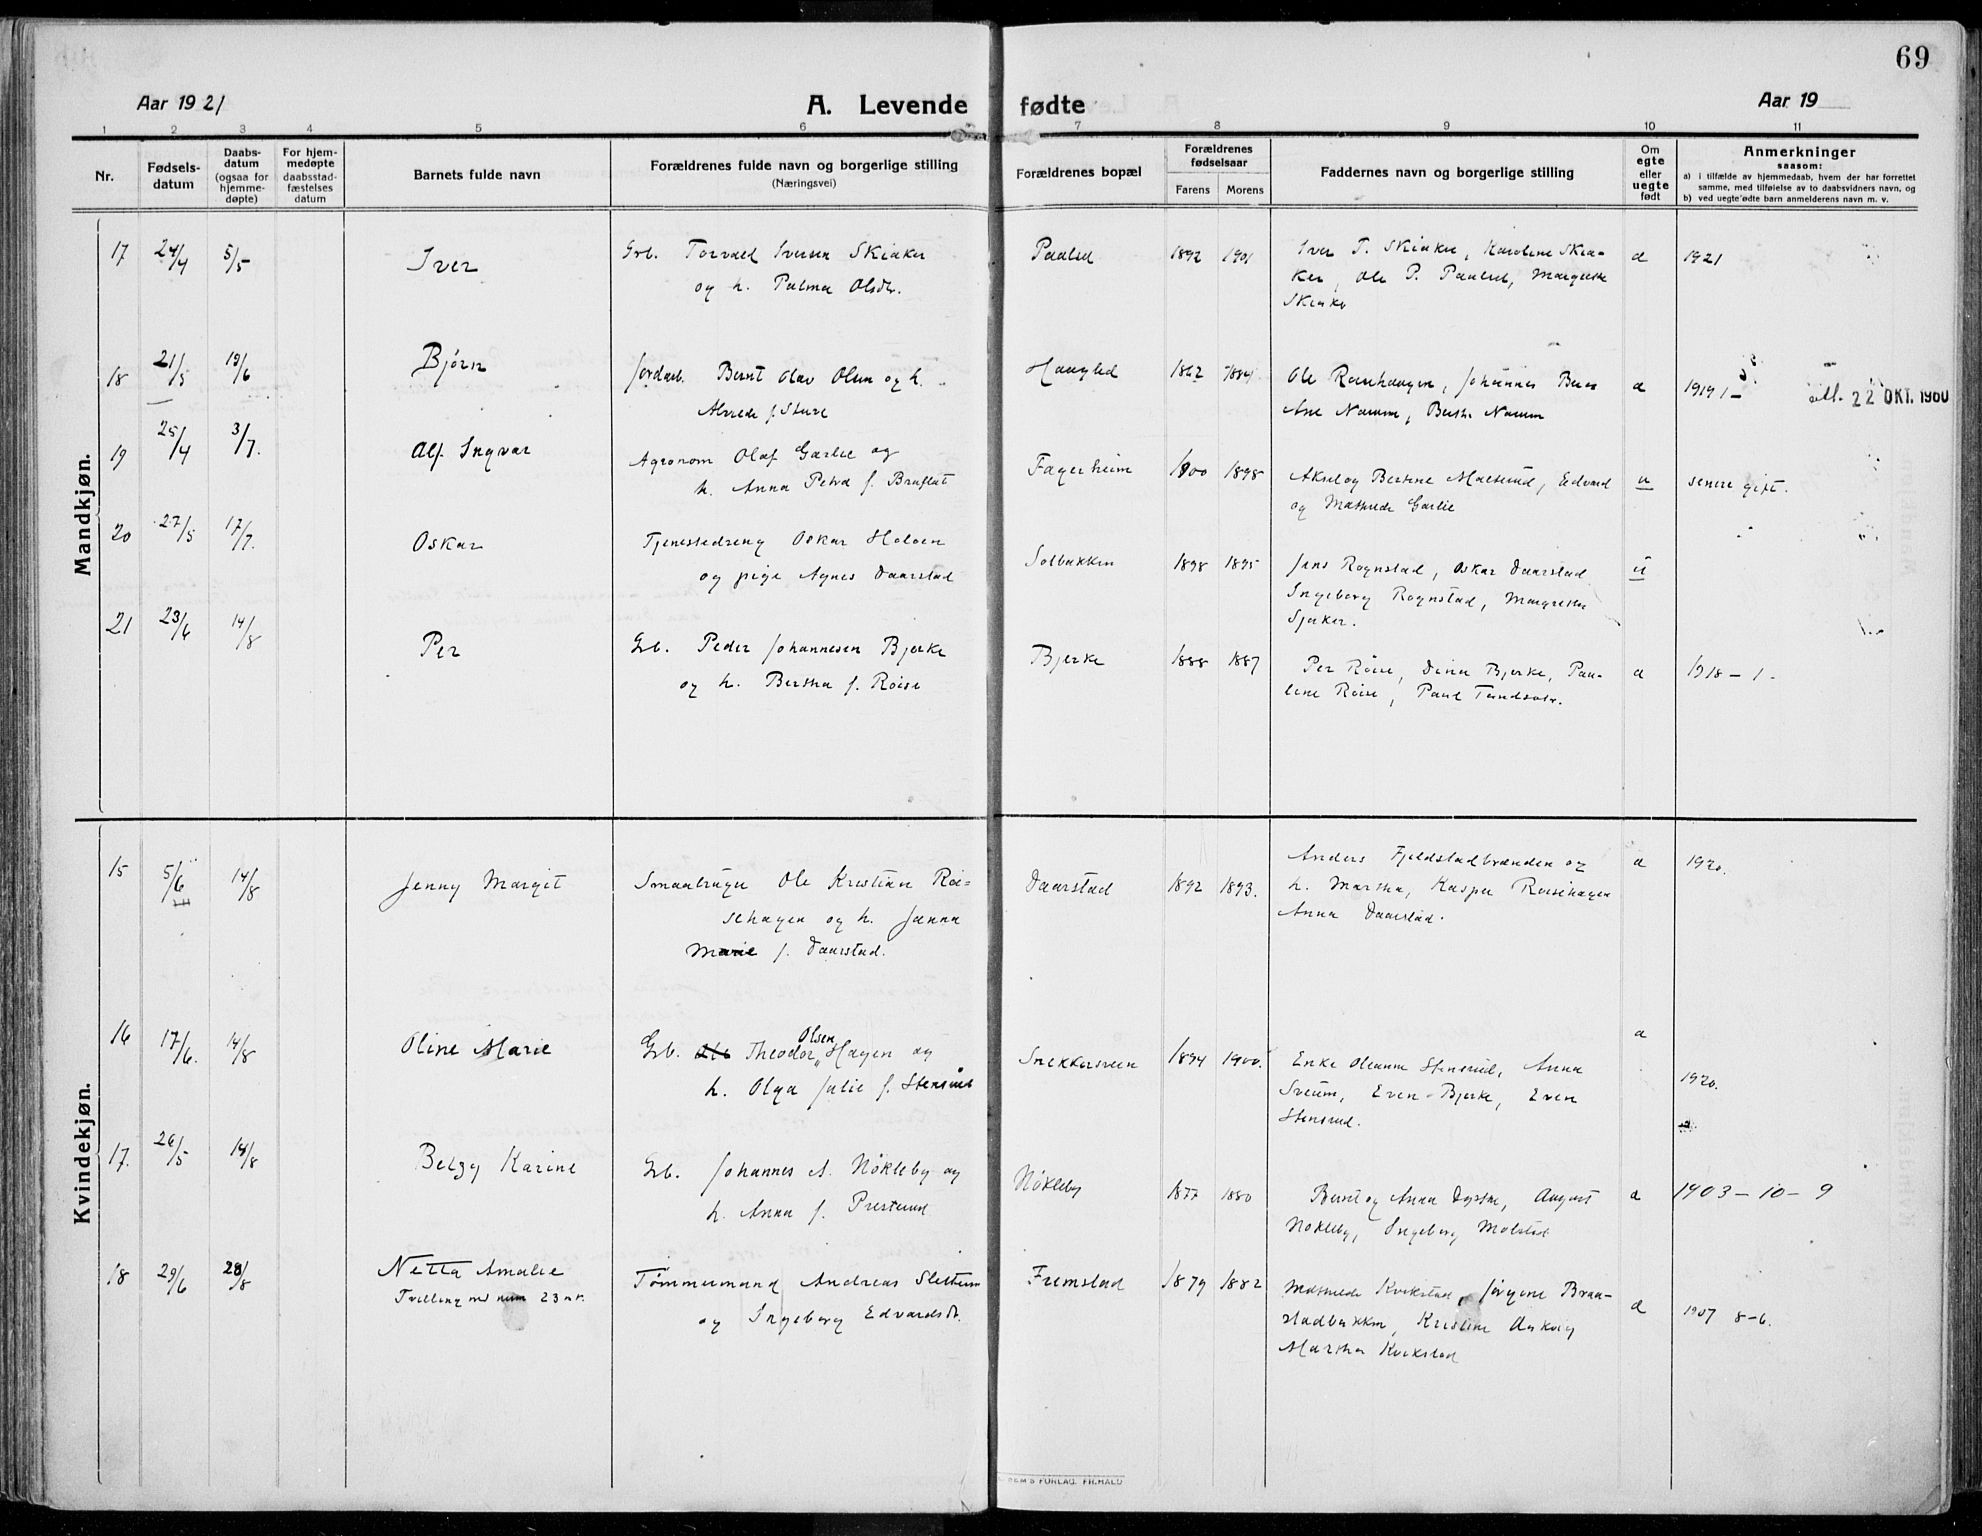 69
Aar 1921
A. Levende fødte
Aar 19
1 2 3 4 5 6 7 8 9 10 11
Nr.
Fødsels-
datum
Daabs-
datum
(ogsaa for
hjemme-
døpte)
For hjem-
medøpte
daabsstad-
fæstelses
datum
Barnets fulde navn
Forældrenes fulde navn og borgerlige stilling
(Næringsvei)
Forældrenes bopæl
Forældrenes
fødselsaar
Farens Morens
Faddernes navn og borgerlige stilling
Om
egte
eller
uegte
født
Anmerkninger
saasom:
a) i tilfælde av hjemmedaab, hvem der har forrettet
samme, med tilføielse av to daabsvidners navn, og
b) ved uegte fødte barn anmelderens navn m. v.
Mandkjøn.
17 24/4 5/5 Iver Grb. Torvald Iversen Skiaker
og h. Palma Olsdtr.
Paalsd 1892 1901
Iver T. Skiaker, Karoline Skia-
ker, Ole P. Paalsd, Margrethe
Skiaker
a 1921
18 21/5 19/6 Bjørn Jordarb. Bernt Olav Olsen og h.
Alvilde f. Sture
Haugled 1862 1884
Ole Roisehaugen, Johannes
Ane Namm, Berthe Namm
a 1919 1 - att. 22 OKT. 1960
19 25/4 3/7. Alf Ingvar Agronom Olaf Garlie og
h. Anna Petra f. Braflat
Fagerheim 1900 1898
Aksel og Bertine Maelsund, Edvard
og Mathilde Garlie
u senere gift.
20 27/5 17/7. Oskar Tjenestedreng Oskar Holoen
og pige Agnes Daarstad
Solbakken 1898 1895
Jens Rognstad, Oskar Daarstad
Ingeborg Rognstad, Margrethe
Sjaker.
u
21 23/6 14/8 Per Grb. Peder Johannesen Bjerke
og h. Bertha f. Røise
Bjerke 1888 1887
Per Røise, Dina Bjerke, Pau-
line Røise, Paul
a 1918 - 1 -
Kvindekjøn.
15 5/6 14/8 Jenny Margit Smaabruger Ole Kristian Roi-
sehagen og h. Janna
Marie f. Daarstad.
Daarstad 1892 1893.
Anders Fjeldstadbrænden og
h. Martha, Kasper Roisehagen
Anna Daarstad.
a 1920.
16 17/6. 14/8 Oline Marie Grb. Ole Theodor Olsen Hagen og
h. Olga Julie f. Stensrud
Snekkersveen 1894 1900.
Enke Oleanne Stensrud, Anna
Sveum, Even Bjerke, Even
Stensrud.
a 1920.
17. 26/5 14/8 Betzy Karine Grb. Johannes A. Nøkleby og
h. Anna f. Presterud
Nøkleby 1877 1880
Bernt og Anna Dyste, August
Nøkleby, Ingeborg Molstad
a 1903 - 10 - 9
18 29/6 28/8 Netta Amalie
Tvilling med num 23 n.r.
Tømmermand Andreas Slettum
og Ingeborg Edvardsdtr.
Fremstad 1879 1882
Mathilde Kvikstad, Jørgine Braa-
stadbakken, Kristine Askvig
Martha Kvikstad
a 1907 8-6.
FORLAG. FR. HALD